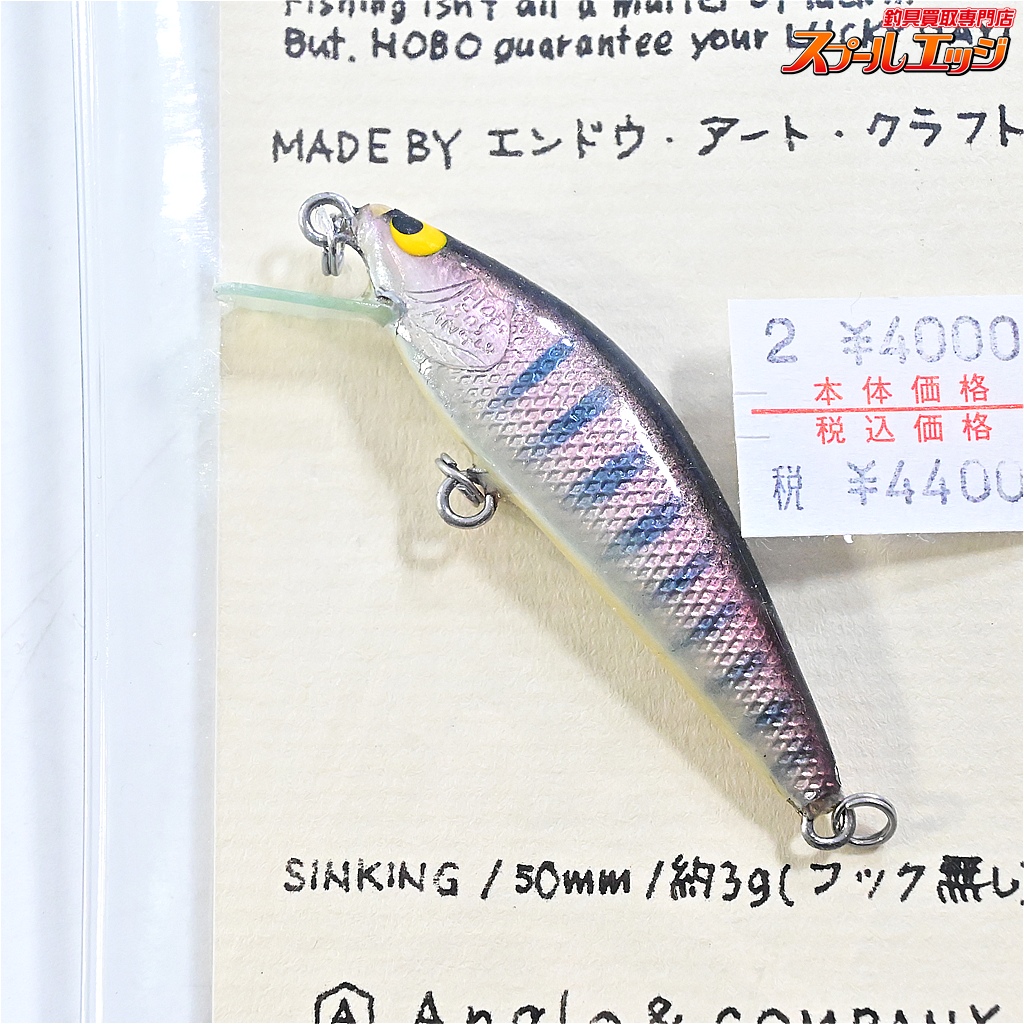 Fishing isn't all a matter of luck
釣具買取専門店
スプールエッジ
But. HOBO guarantee your LUCKY DAY!
MADE BY エンドウ・アート・クラフト
2 ¥4000
本体価格
税込価格
税 ¥4400
SINKING / 50mm / 約3g(フック無し)
A Angle & COMPANY